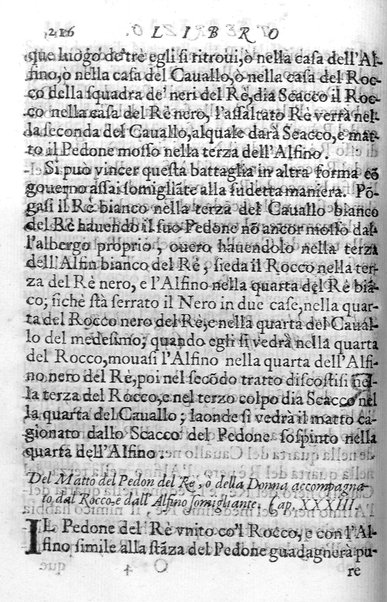 216 O LIBRO
que luogo de'tre egli si ritroui, ò nella casa dell'Al-
fino, ò nella casa del Cauallo, ò nella casa del Roc
co della squadra de' neri del Rè, dia Scacco il Roc-
co nella casa del Rè nero, l'assaltato Rè verrà nel-
la seconda del Cauallo, alquale darà Scacco, e mat-
to il Pedone mosso nella terza dell'Alfino.
Si può vincer questa battaglia in altra forma cō
gouerno assai somigliāte alla sudetta maniera. Pō
gasi il Rè bianco nella terza del Cauallo bianco
del Rè hauendo il suo Pedone nō ancor mosso dal
l'albergo proprio, ouero hauendolo nella terza
dell'Alfin bianco del Rè, sieda il Rocco nella ter-
za del Rè nero, e l'Alfino nella quarta del Rè biā-
co, sichè stà serrato il Nero in due case, nella quar
ta del Rocco nero del Rè, e nella quarta del Caual
lo del medesimo; quando egli si vedrà nella quarta
del Rocco, mouasi l'Alfino nella quarta dell'Alfi-
no nero del Rè, poi nel secōdo tratto discostisi nel
la terza del Rocco, e nel terzo colpo dia Scacco nel
la quarta del Cauallo; laonde si vedrà il matto ca-
gionato dallo Scacco del Pedone sospinto nella
quarta dell'Alfino.
Del Matto del Pedon del Re, o della Donna accompagna
to dal Rocco, e dall'Alfino somigliante. Cap. XXXIII.
IL Pedone del Rè vnito co'l Rocco, e con l'Al-
fino simile alla stāza del Pedone guadagnerà pu-
O 4 re